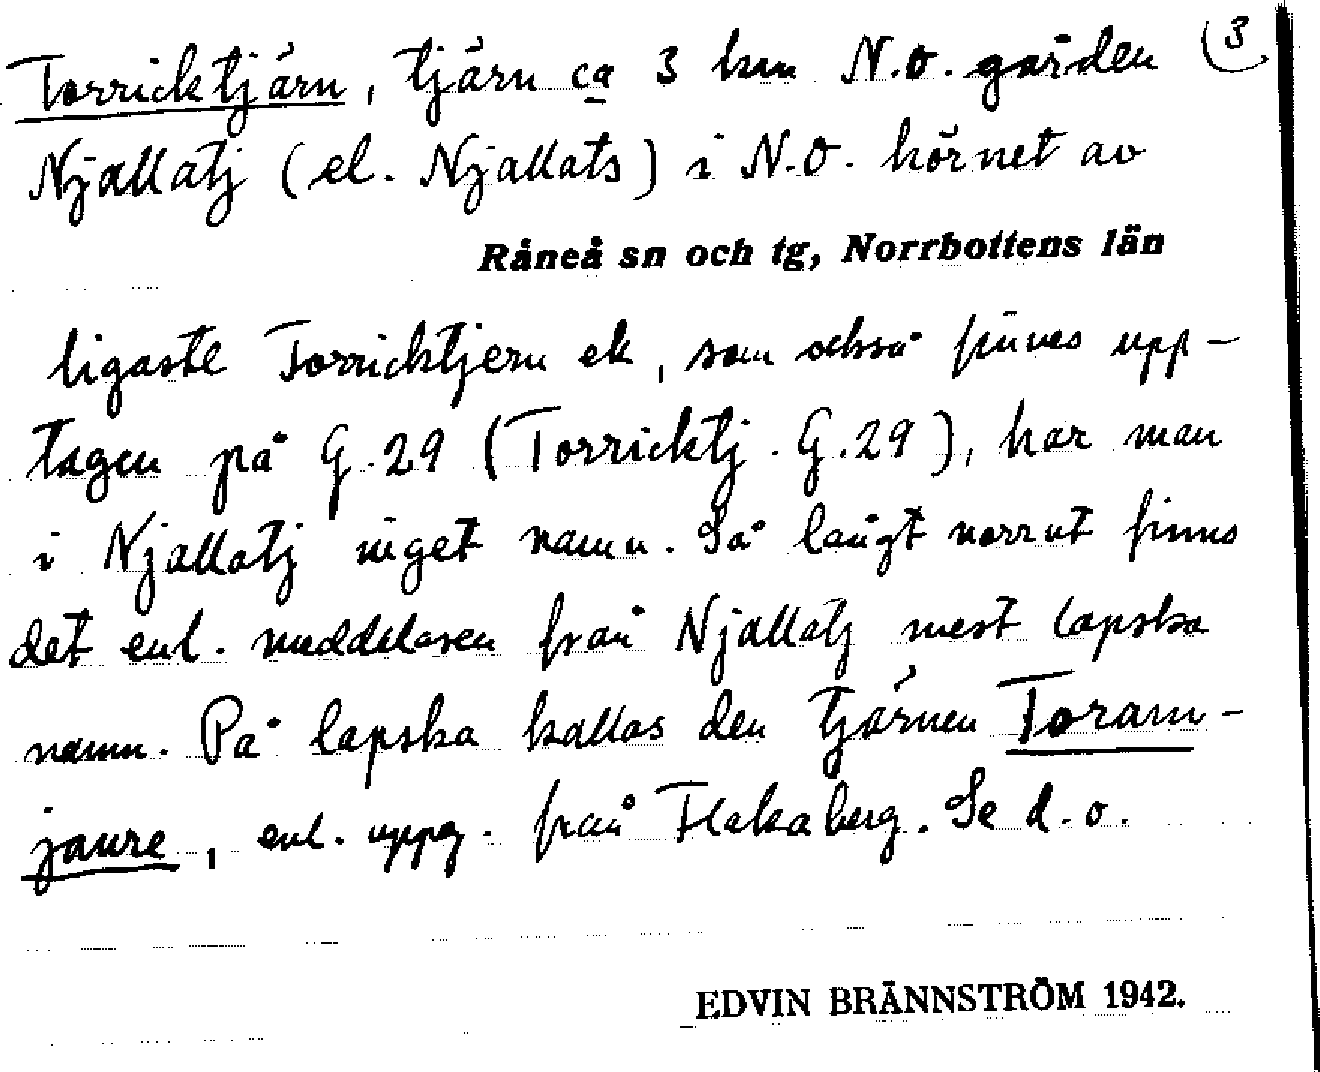 Torricktjärn, tjärn ca 3 km N.O. gården (3
Njallatj (el. Njallats) i N.O. hörnet av
Råneå sn och tg, Norrbottens län
ligaste Torricktjern ek, som också finnes upp-
tagen på G.29 (Torricktj. G.29), har man
i Njallatj inget namn. Så långt norrut finns
det enl. meddelaren från Njallatj mest lapska
namn. På lapska kallas den tjärnen Toram-
jaure, enl. uppg. från Flakaberg. Se d.o.
EDVIN BRÄNNSTRÖM 1942.